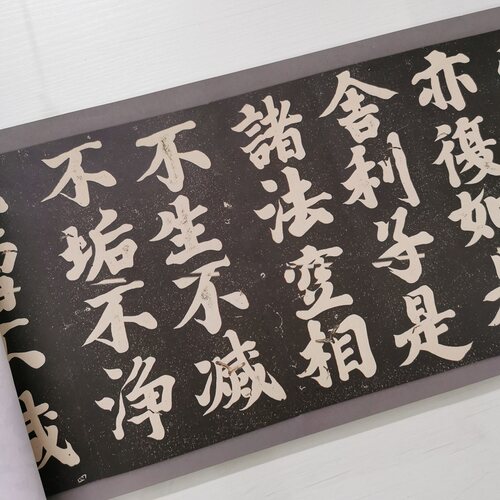 亦復如
舍利子是
諸法空相
不生不滅
不垢不净